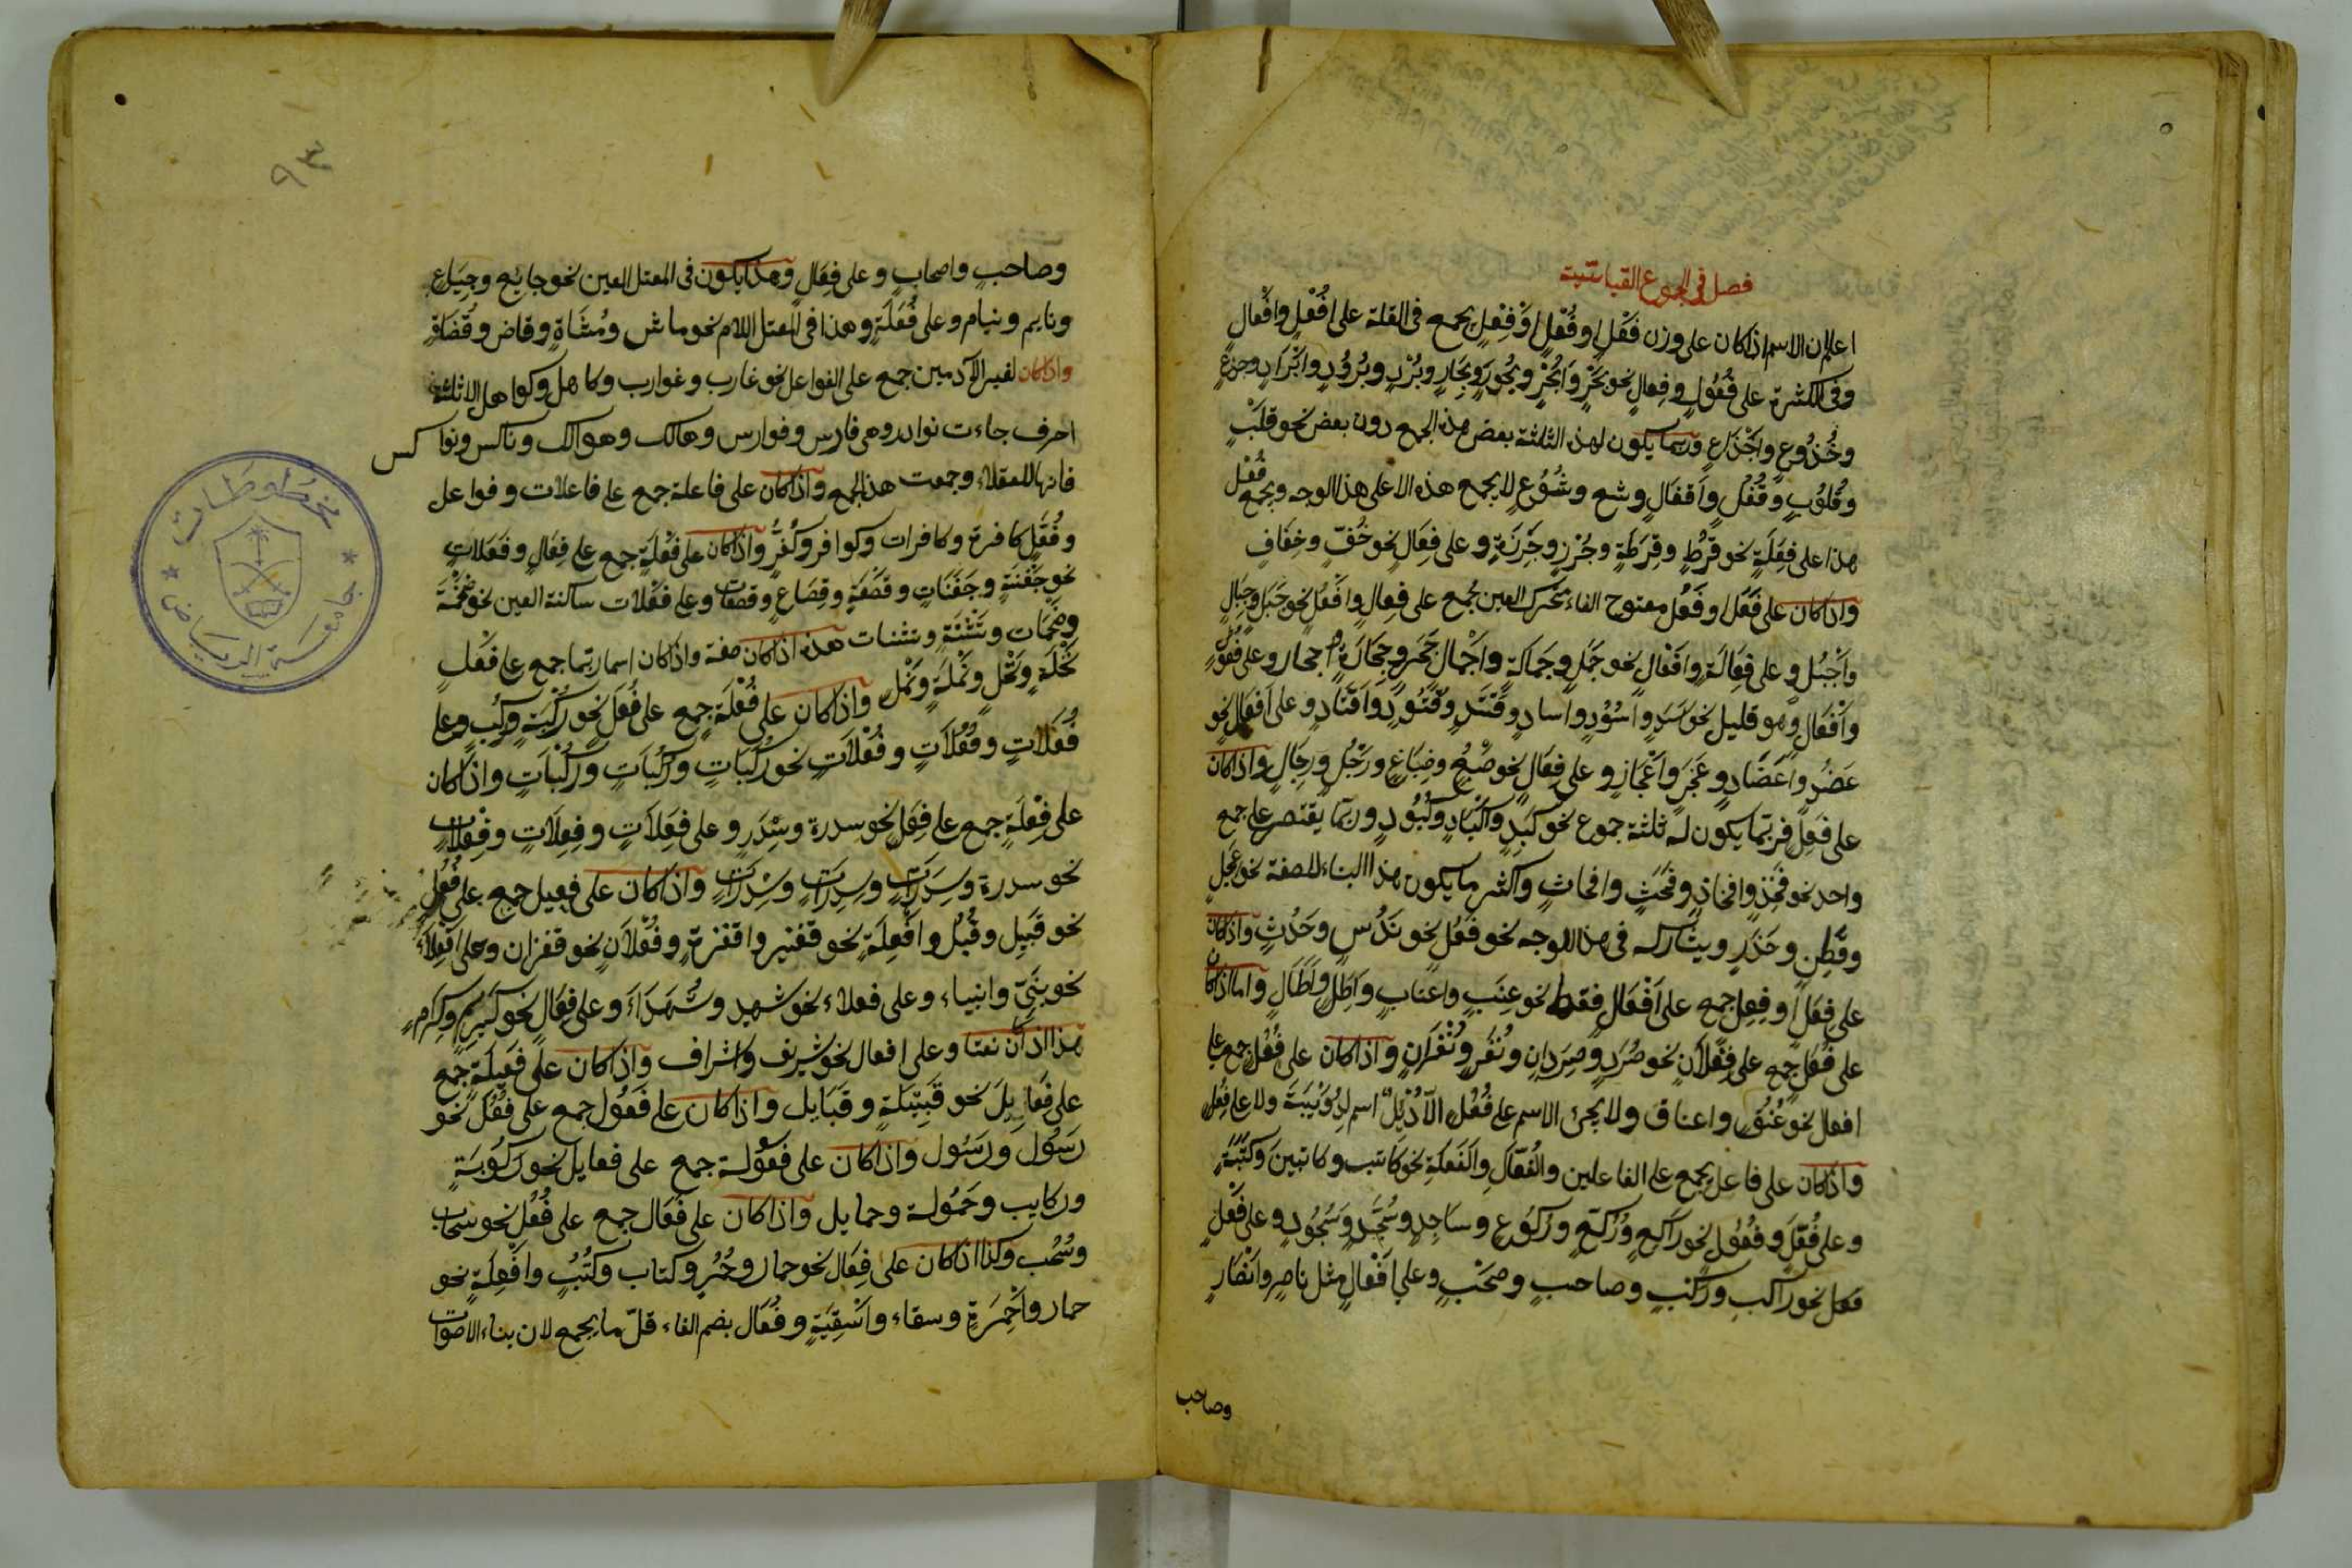 فصل في الجموع القياسية
اعلم ان الاسم اذا كان على وزن فَعْلٍ او فُعْلٍ او فِعْلٍ يجمع فى القلة على افْعُلٍ وافْعالٍ
وفى الكثرة على فُعُولٍ وفِعالٍ نحو بَحْرٍ وابْحُرٍ وبُحُورٍ وبِحَارٍ وبُرْدٍ وبُرُودٍ وابْرَادٍ وجذعٍ
وجُذُوعٍ واجْذَاعٍ وربما يكون لهذه الثلثة بعض هذه الجمع دون بعض نحو قلبٍ
وقُلُوبٍ وقُفْلٍ واَقفَالٍ وشسع وشُسُوعٍ لا يجمع هذه الا على هذا الوجه ويجمع فُعْل
هذا على فِعَلَةٍ نحو قُرْطٍ وقِرَطَةٍ وجُرْزٍ وجِرَزَةٍ وعلى فِعَالٍ نحو خُفٍّ وخِفَافٍ
واذا كان على فَعَل او فَعُل مفتوح الفاء متحرك العين يجمع على فِعالٍ وافْعُلٍ نحو جَبَلٍ وجِبَالٍ
واَجْبُلٍ وعلى فِعَالَةٍ وافْعَالٍ نحو جَمَلٍ وجِمَالَةٍ واَجْمالٍ حَجَرٍ وحِجَارَةٍ احجار وعلى فُعُولٍ
واَفْعَالٍ وهو قليل نحو اَسَدٍ واُسُوْدٍ واسادٍ وقَتَدٍ وقُتُودٍ واَقتَادٍ وعلى اَفْعَالٍ نحو
عَضُدٍ واعَضَادٍ وعَجُزٍ واَعْجَازٍ وعلى فِعَالٍ نحو ضَبُعٍ وضِبَاعٍ ورَجُلٍ ورِجَالٍ واذا كان
على فَعِلٍ فربّما يكون له ثلثة جموع نحو كَبِدٍ واَكْبَادٍ وكُبُودٍ وربّما يقتصر على جمع
واحد نحو فَخِذٍ وافخاذٍ وفَحِثٍ وافحاثٍ واكثر ما يكون هذا البناء للصفة نحو عَجِلٍ
وفَطِنٍ وحَذِرٍ ويشاركه فى هذا الوجه نحو فَعُلٍ نحو نَدُسٍ وحَدُثٍ واذا كان
على فِعَلٍ او فِعِلٍ جمع على اَفْعَالٍ فقط نحو عِنَبٍ واعنابٍ واِطِلٍ واطَالٍ واما اذا كان
على فُعَلٍ جمع على فِعْلَانٍ نحو صُرَدٍ وصِرْدَانٍ ونُغَرٍ ونِغْرَانٍ واذا كان على فُعُلٍ جمع على
افعال نحو عُنُقٍ واعناق ولا يجئ الاسم على فُعِلٍ الاّ دُئِلٌ اسم لدُوَيْبَةٍ ولا على فِعُل
واذا كان على فاعل يجمع على الفاعلين والفُعّالِ والفَعَلَةِ نحو كاتب وكاتبين وكَتَبَةٍ
وعلى فُعَّلٍ وفُعُولٍ نحو راكعٍ ورُكّعٍ وركُوعٍ وساجِدٍ وسُجَّدٍ وسُجُودٍ وعلى فَعْلٍ
فعل نحو راكبٍ وركْبٍ وصاحبٍ وصَحْبٍ وعلى اَفْعالٍ مثل ناصرٍ وانْصَارٍ
وصاحب
٩٣
وصاحبٍ واصحابٍ وعلى فِعَالٍ وهذا يكون فى المعتل العين نحو جايعٍ وجِيَاعٍ
ونايم ونيام وعلى فُعَلَةٍ وهذا فى المعتل اللام نحو ماش ومُشَاةٍ وقاض وقُضَاةٍ
واذا كان لغير الآدمين جمع على الفواعل نحو غارب وغوارب وكاهل وكواهل الا ثلثة
احرف جاءت نوادر وهى فارس وفوارس وهالك وهوالك وناكس ونواكس
فانها للعقلاء وجمعت هذا الجمع واذا كان على فاعلة جمع على فاعلات وفواعل
وفُعَّلٍ كافرة وكافرات وكوافر وكُفَّرٌ واذا كان على فَعْلَةٍ جمع على فِعَالٍ وفَعَلاتٍ
نحو جَفْنَةٍ وجَفَنَاتٍ وقَصْعَةٍ وقِصَاعٍ وقصعات وعلى فَعْلات ساكنة العين نحو ضخْمَةٍ
وضخْمَات وشنات هذه اذا كان صفة واذا كان اسما ربّما جمع على فَعْل
نَخْلَةٍ ونَخْلٍ ونَمْلَةٍ ونَمْلٍ واذا كان على فُعْلَةٍ جمع على فُعَلٍ نحو رُكْبَةٍ ورُكَبٍ وعلى
فُعَلَاتٍ وفُعُلَاتٍ وفُعْلَاتٍ نحو رُكَبَاتٍ ورُكُبَاتٍ ورُكْبَاتٍ واذا كان
على فِعْلَةٍ جمع على فِعَلٍ نحو سدرة وسِدَرٍ وعلى فِعَلَاتٍ وفِعِلَاتٍ وفِعْلاتٍ
نحو سدرة وسِدَرَاتٍ وسِدِرَاتٍ وسِدْرَاتٍ واذا كان على فعيل جمع على فُعُلٍ
نحو قبَيِل وقُبُل واَفْعِلَةٍ نحو قفيز واقفزةٍ وفُعْلَانٍ نحو قفزان وعلى افْعِلَاءَ
نحو نبىّ وانبياء وعلى فعلاء نحو شهيد وشُهَدَاءَ وعلى فِعَالٍ نحو كَرِيمٍ وكِرامٍ
هذا اذا كان نعتا وعلى افعال نحو شريف واشراف واذا كان على فَعِيلَةٍ جمع
على فَعَايِلَ نحو قَبِيْلَةٍ وقَبَايل واذا كان على فَعُولٍ جمع على فُعُلٍ نحو
رَسُوْل ورُسُل واذا كان على فعُوْلة جمع على فعايل نحو ركُوْبَةٍ
وركايب وحَمُولة وحمايل واذا كان على فَعَال جمع على فُعُلٍ نحو سحاب
وسُحُب وكذا اذا كان على فِعَال نحو حمار وحُمُرٍ وكتاب وكتُبٍ وافْعِلَةٍ نحو
حمار واَحْمِرَةٍ وسقاء واَسْقِيَةٍ وفُعَال بضم الفاء قلّ ما يجمع لان بناء الاصوات
مخطوطات
جامعة الرياض